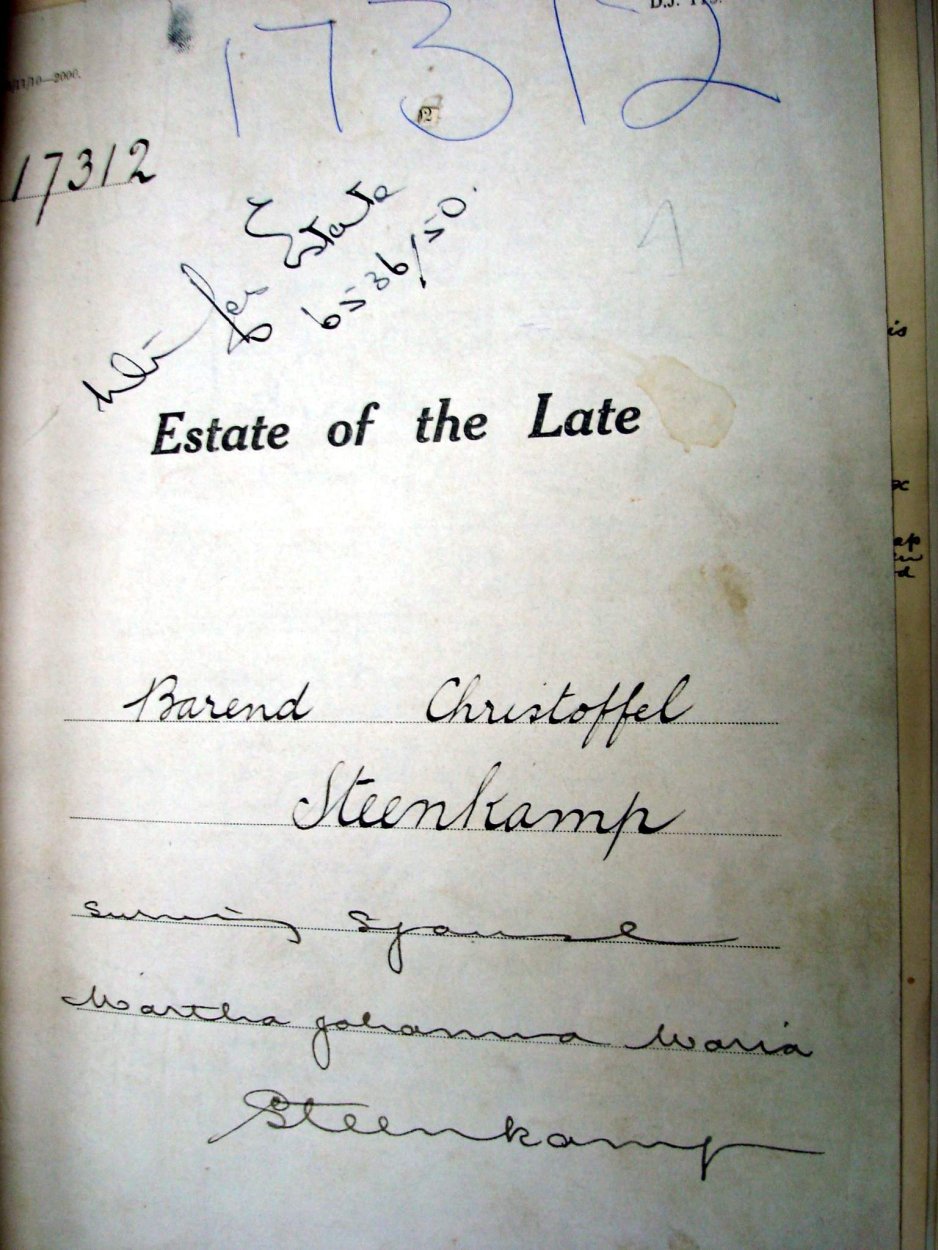 17312
/11/10—2000.
17312
Estate
6536/50.
Estate of the Late
Barend Christoffel
Steenkamp
surviving Spouse
Martha Johanna Maria
Steenkamp